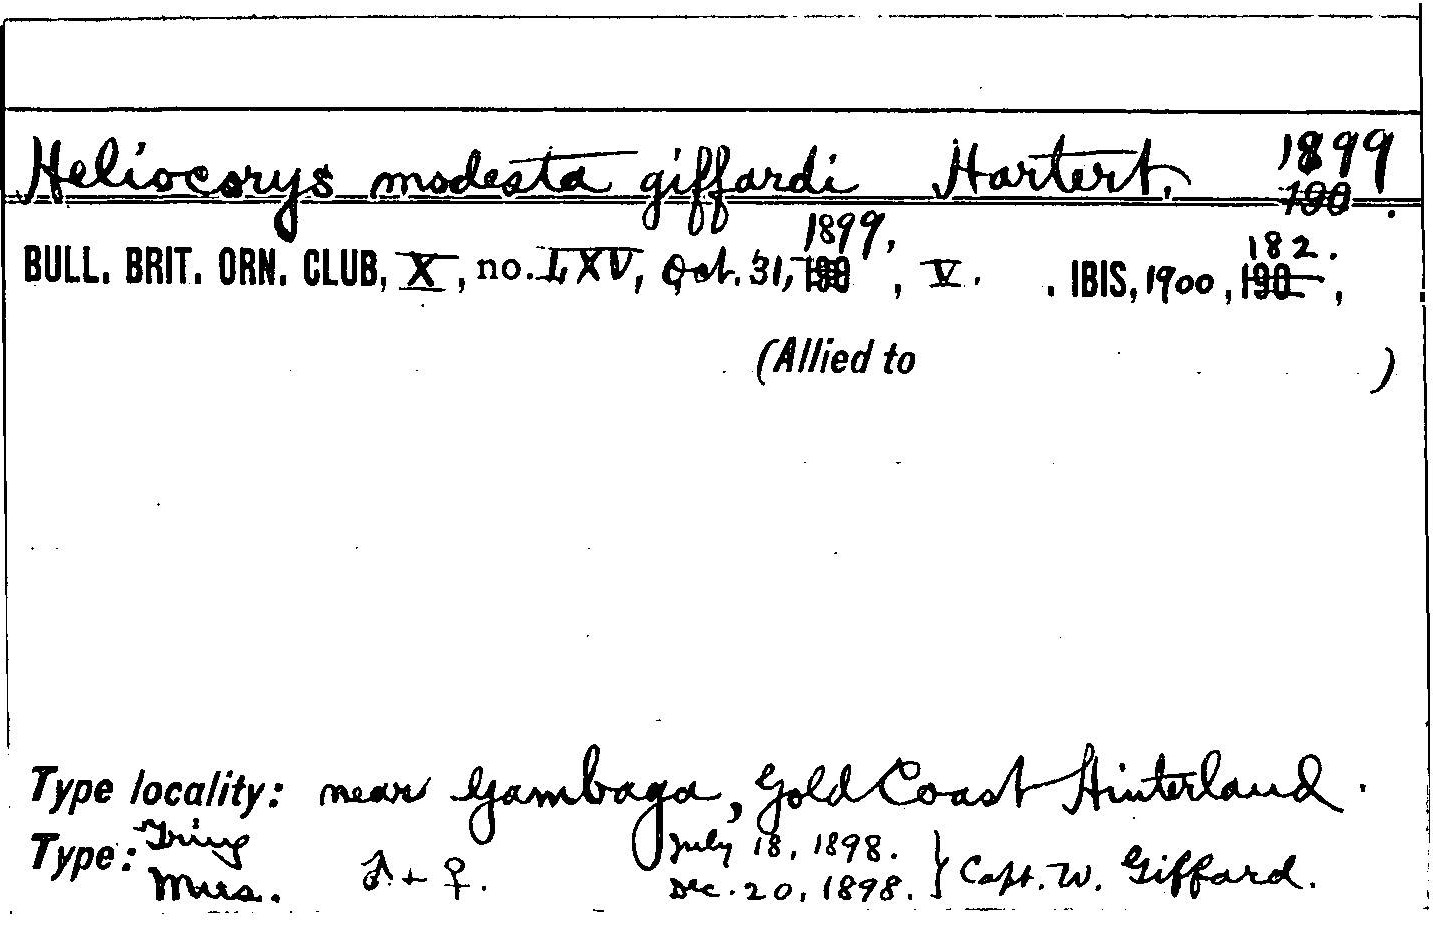 Heliocorys modesta giffardi Hartert. 1899
190 .
1899, 182.
BULL. BRIT. ORN. CLUB, X, no. LXV, Oct. 31, 190 , V. . IBIS, 1900, 190 ,
(Allied to )
Type locality: near Gambaga, Gold Coast Hinterland.
Type: Tring Mus. ♂ + ♀. July 18, 1898. } Capt. W. Giffard.
Dec. 20, 1898.